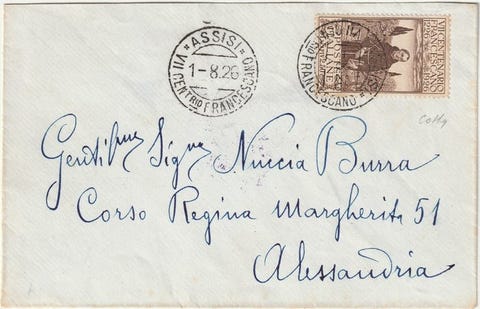 ASSISI
1-8.26
VII CENT.RIO FRANCESCANO
ASSISI
FRANCESCANO
VII CENTENARIO
FRANCESCANO
Colla
Gentilma Signa Nuccia Burra
Corso Regina Margherita 51
Alessandria